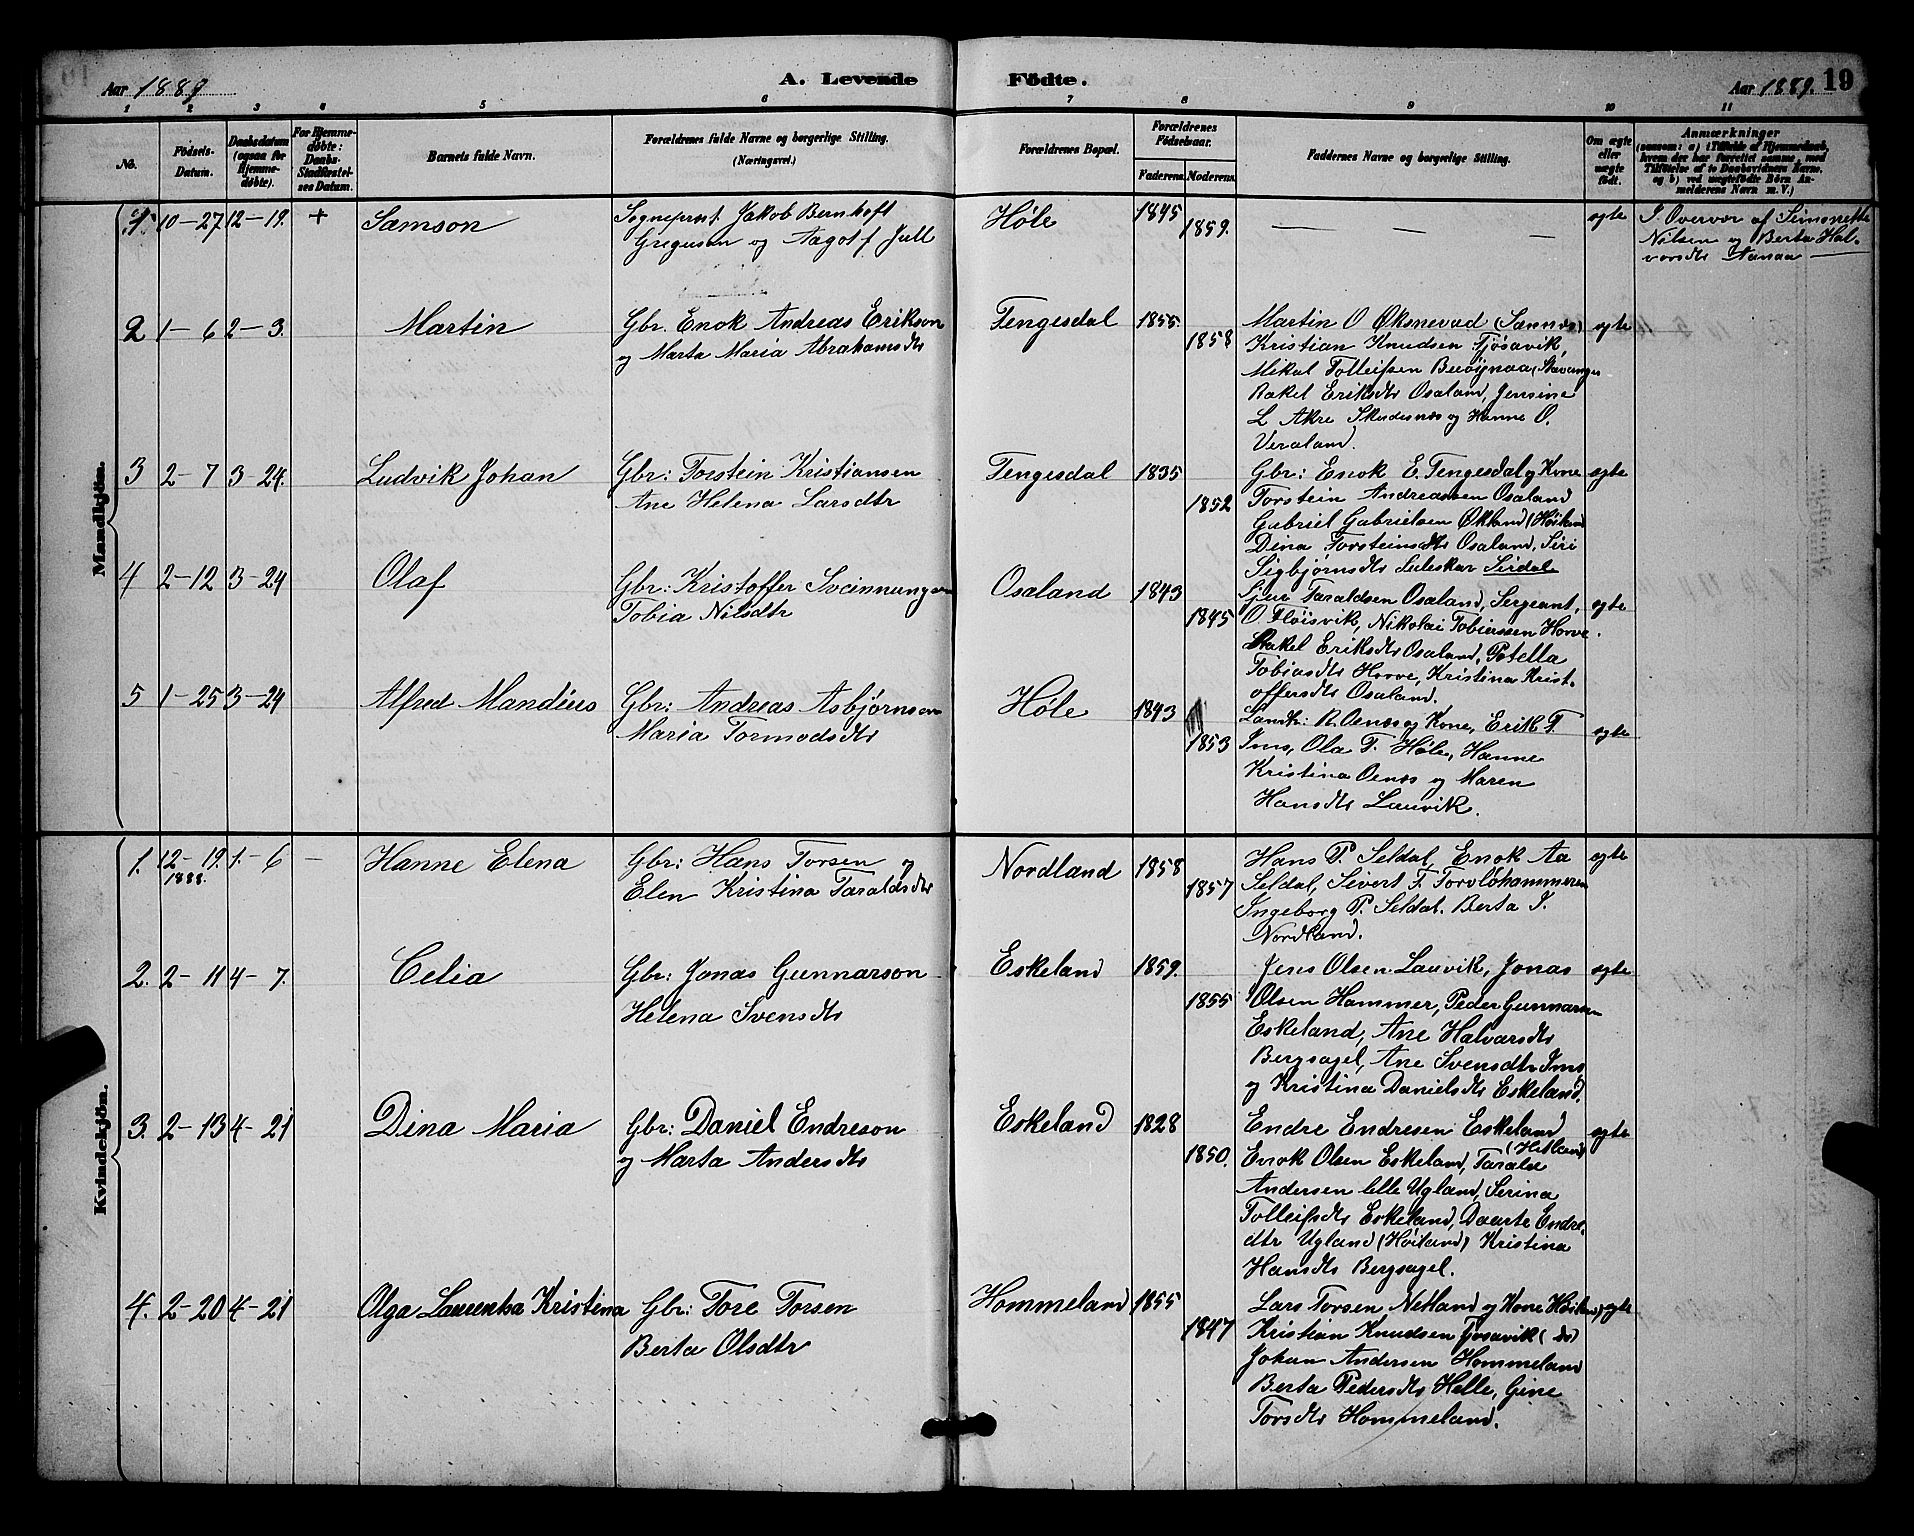 Aar 1889
A. Levende
Födte.
Aar 1889. 19
1 2 3 4 5 6 7 8 9 10 11
No.
Födsels-Datum.
Daabsdatum (ogsaa for Hjemmedöbte).
For Hjemmedöbte: Daabs-Stadfæstelses Datum.
Barnets fulde Navn.
Forældrenes fulde Navne og borgerlige Stilling. (Næringsvei.)
Forældrenes Bopæl.
Forældrenes Födselsaar.
Faderens. Moderens.
Faddernes Navne og borgerlige Stilling.
Om ægte eller uægte födt.
Anmærkninger
(saasom: a) i Tilfælde af Hjemmedaab, hvem der har forrettet samme, med Tilföielse af to Daabsvidners Navne, og b) ved uægtefödte Börn Anmelderens Navn m. V.)
Mandkjön.
1 10-27 12-19. + Samson
Sogneprest Jakob Bernhoft
Gregusen og Aagot f Jull
Høle 1845 1859. — — — egte
I Overvær af Simonette
Nilsen og Berta Hal-
vorsdtr Aanaa
2 1-6 2-3. Martin
Gbr. Enok Andreas Erikson
og Marta Maria Abrahamsdtr
Tengesdal 1855. 1858 egte
Martin O Øksnevad (Sannæs)
Kristian Knudsen Tjøsavik,
Mikal Tolleifsen (Stavanger
Rakel Eriksdtr Osaland, Jensine
L Akre Skudesnæs og Hanne O.
Veraland.
3 2-7 3-24. Ludvik Johan
Gbr: Torstein Kristiansen
Ane Helena Larsdtr
Tengesdal 1835 1852 egte
Gbr: Enok E. Tengesdal og Kone
Torstein Andreassen Osaland
Gabriel Gabrielsen Økland (Høiland
Dina Torsteinsdtr Osaland, Siri
Sigbjørnsdtr Suleskar Sirdal
4 2-12 3-24 Olaf
Gbr: Kristoffer Sveinnungsen
Tobia Nilsdtr
Osaland 1843 1845 egte.
Sjur Taraldsen Osaland, Sergeant,
O. Fløisvik, Nikolai Tobiassen Horve
Rakel Eriksdtr Osaland, Petella
Tobiasdtr Horve, Kristina Krist-
offersdtr Osaland.
5 1-25 3-24 Alfred Mandius
Gbr: Andreas Asbjørnsen
Maria Tormodsdtr
Høle 1843 1853 egte
Landh: R. Oenæs og Kone, Erik T.
Ims, Ola T. Høle, Hanne
Kristina Oenæs og Maren
Hansdtr Lauvik.
Kvindekjön.
1. 12-19. 1888. 1-6 — Hanne Elena
Gbr: Hans Torsen og
Elen Kristina Taraldsdtr
Nordland 1858 1857 egte
Hans P. Seldal, Enok Aa
Seldal, Sivert F.
Ingeborg P. Seldal. Berta J.
Nordland.
2. 2-11 4-7. Celia
Gbr: Jonas Gunnarson
Helena Svensdtr
Eskeland 1859. 1855 egte
Jens Olsen Lauvik, Jonas
Olsen Hammer, Peder Gunnarsen
Eskeland, Ane Halvarsdtr
Bergsagel, Ane Svensdtr Ims
og Kristina Danielsdtr Eskeland.
3. 2-13 4-21 Dina Maria
Gbr: Daniel Endreson
og Marta Andersdtr
Eskeland 1828 1850. egte
Endre Endresen Eskeland
(Hetland)
Enok Olsen Eskeland, Tarald
Andersen lille Ugland, Serina
Tolleifsdtr Eskeland, Daarte Endre-
dtr Ugland (Høiland) Kristina
Hansdtr Bergsagel.
4. 2-20 4-21 Olga Laurentsa Kristina
Gbr: Tore Torsen
Berta Olsdtr
Hommeland 1855 1847 egte
Lars Torsen Netland og Kone Høiland)
Kristian Knudsen Tjosavik (do)
Johan Andersen Hommeland
Berta Pedersdtr Helle, Gine
Torsdtr Hommeland.